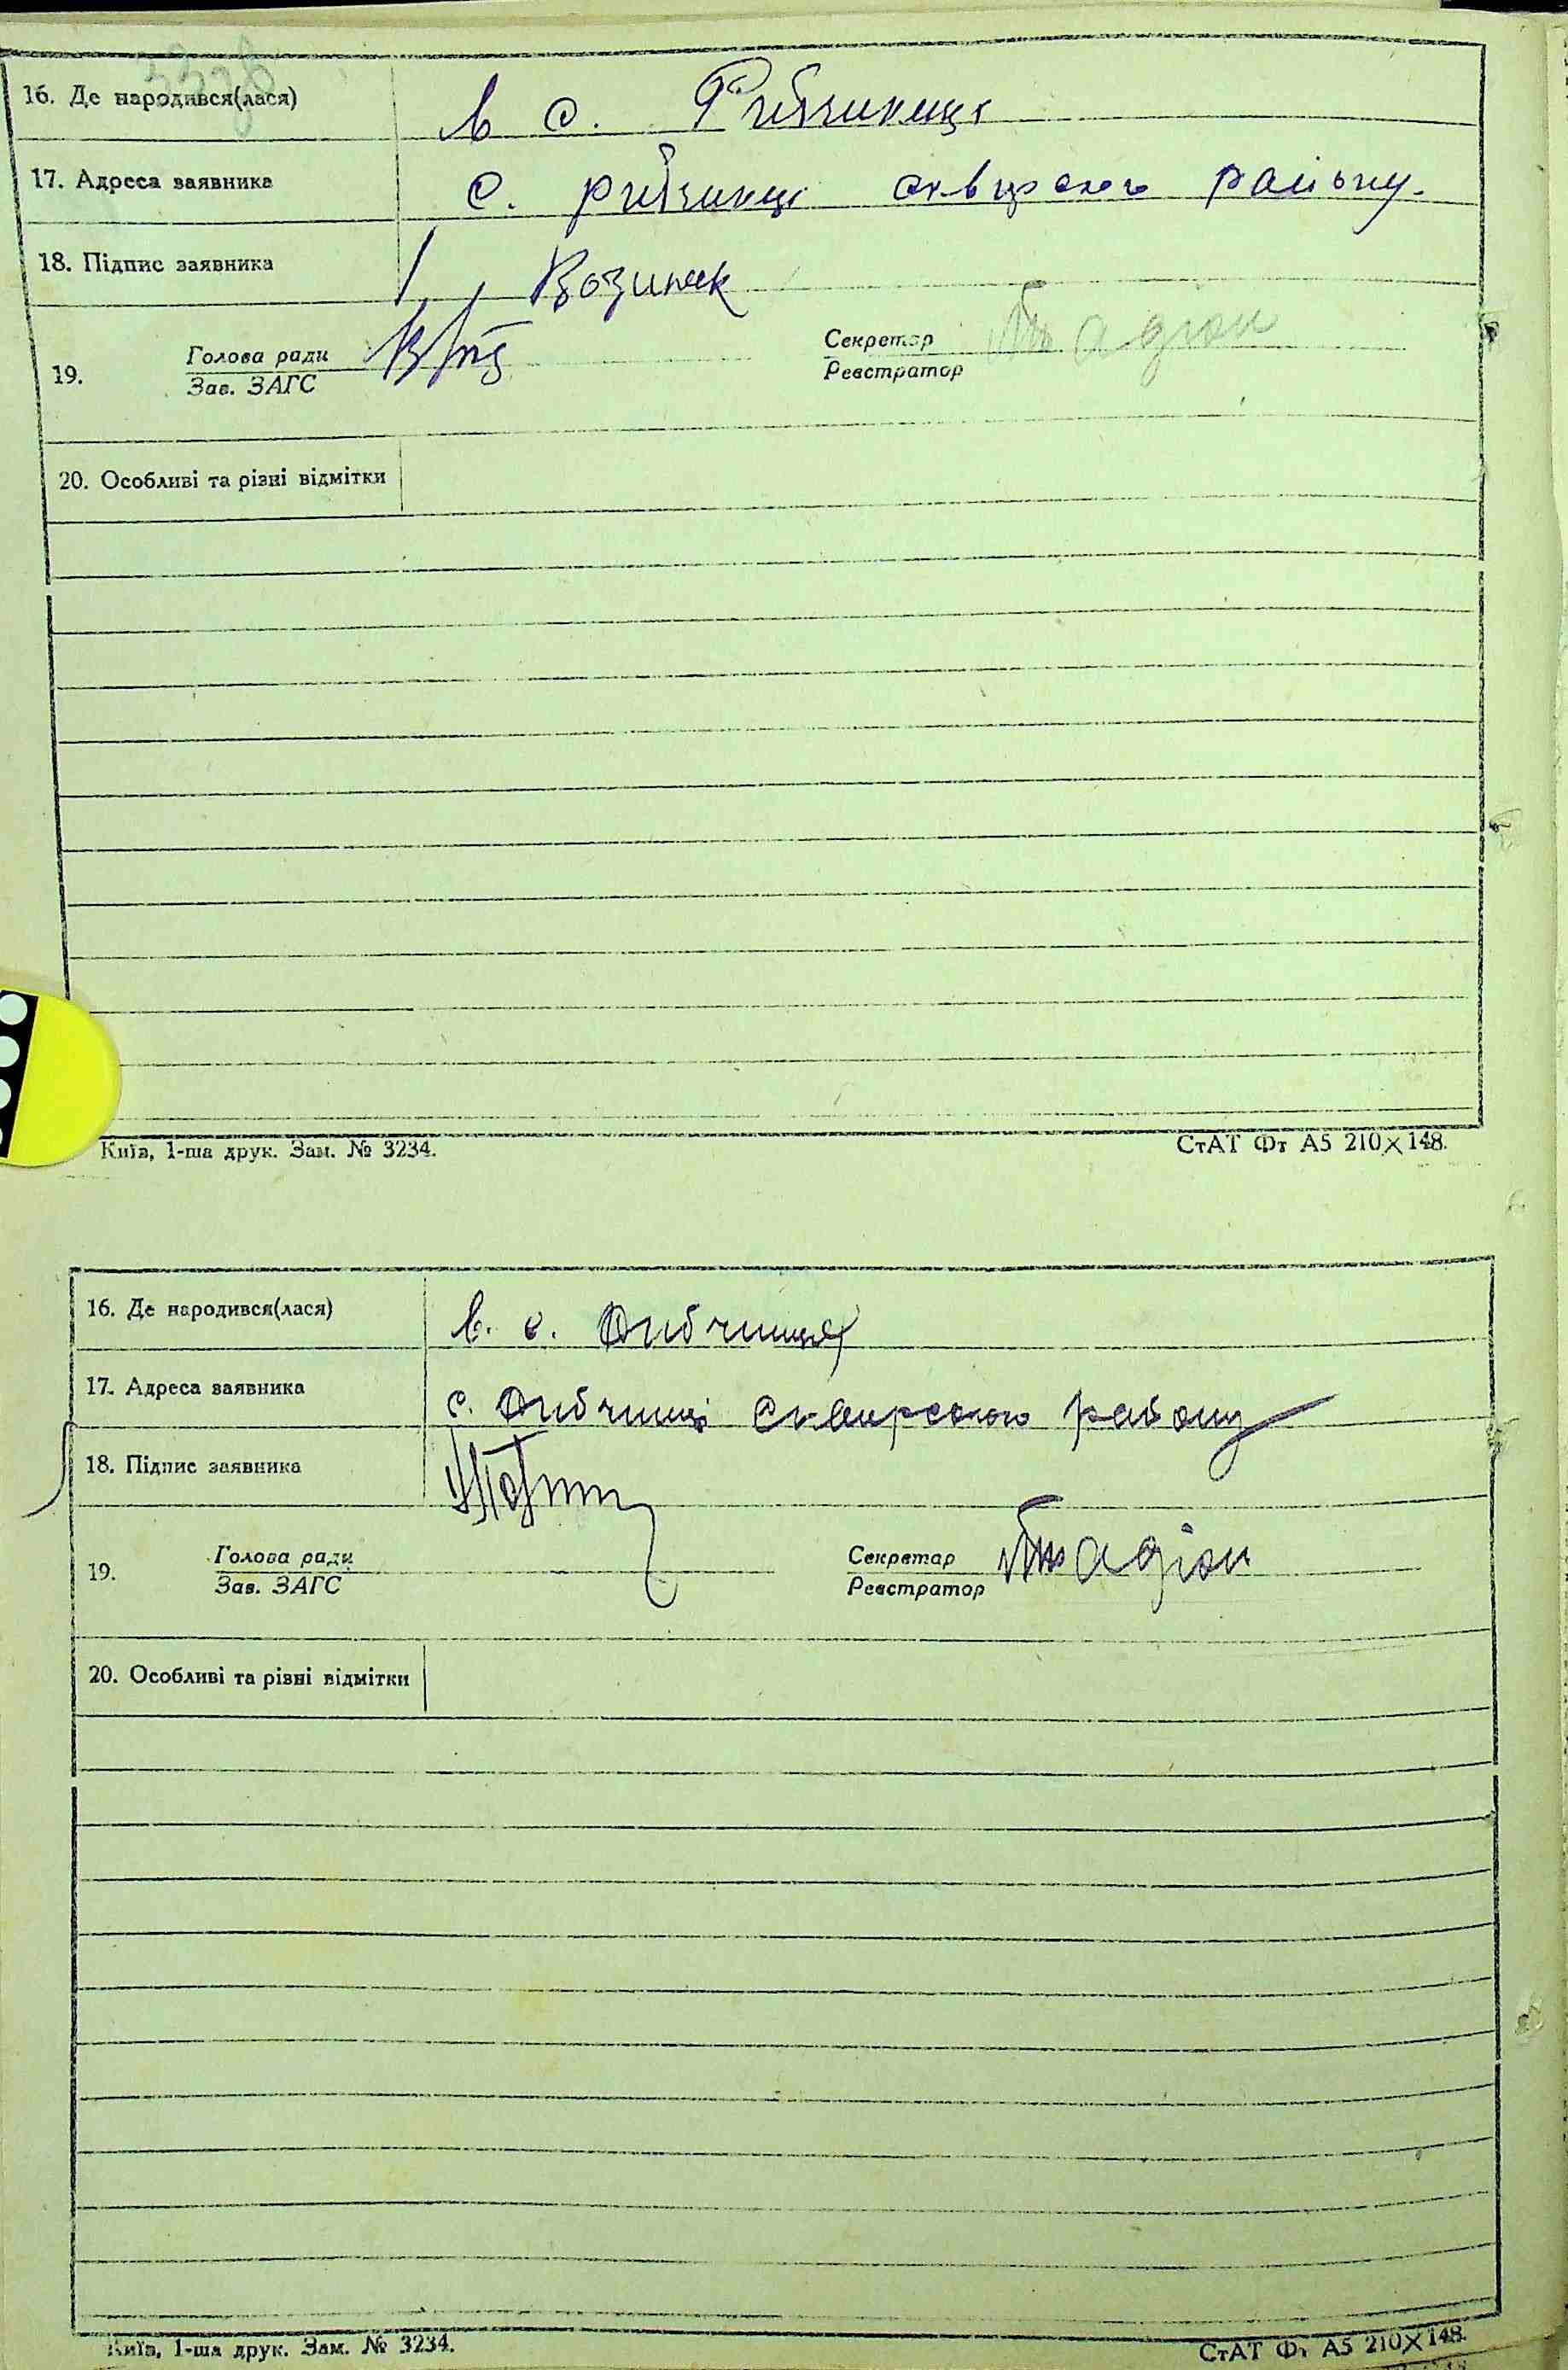 16. Де народився(лася) в с. Рибчинці
17. Адреса заявника с. рибчинці сквирского району.
18. Підпис заявника Возиняк
19. Голова ради Секретар
Зав. ЗАГС Реєстратор
20. Особливі та різні відмітки
Київ, 1-ша друк. Зам. № 3234. СтАТ Фт А5 210×148.
16. Де народився(лася) в. с.
17. Адреса заявника с. Сквирского району
18. Підпис заявника
19. Голова ради Секретар
Зав. ЗАГС Реєстратор
20. Особливі та різні відмітки
Київ, 1-ша друк. Зам. № 3234. СтАТ Фт А5 210×148.